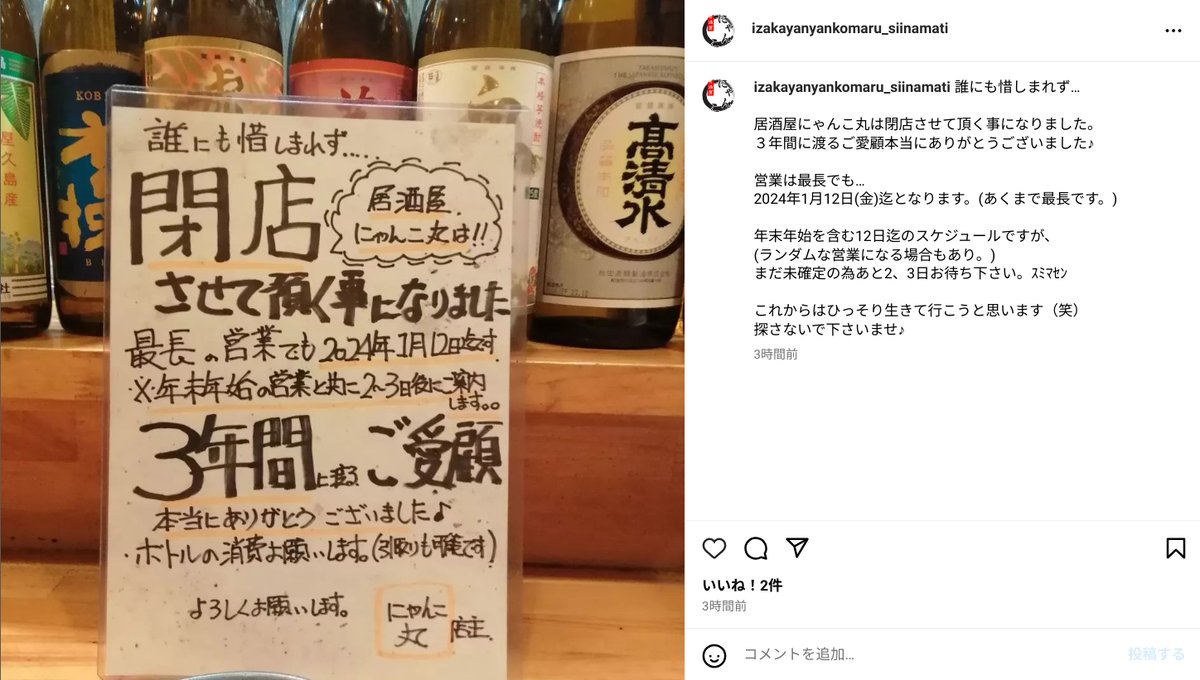 誰にも惜しまれず....
閉店
居酒屋
にゃんこ丸は!!
させて頂く事になりました
最長の営業でも2024年1月12日迄です
※年末年始の営業と共に2~3日後にご案内
します。。
3年間に渡るご愛顧
本当にありがとうございました♪
・ボトルの消費お願いします。(引取りも可能です)
よろしくお願いします。
にゃんこ
丸
店主
高清水
屋久島産
KOB
izakayanyankomaru_siinamati
izakayanyankomaru_siinamati 誰にも惜しまれず…
居酒屋にゃんこ丸は閉店させて頂く事になりました。
３年間に渡るご愛顧本当にありがとうございました♪
営業は最長でも…
2024年1月12日(金)迄となります。(あくまで最長です。)
年末年始を含む12日迄のスケジュールですが、
(ランダムな営業になる場合もあり。)
まだ未確定の為あと2、3日お待ち下さい。ｽﾐﾏｾﾝ
これからはひっそり生きて行こうと思います（笑）
探さないで下さいませ♪
3時間前
いいね！2件
3時間前
コメントを追加…
投稿する